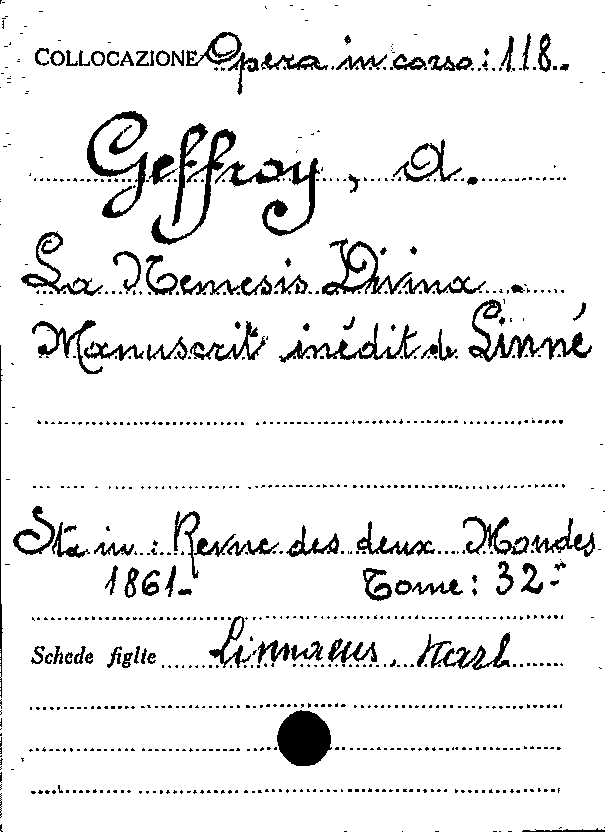 COLLOCAZIONE Opera in corso: 118.
Geffroy, A.
La Nemesis Divina.
Manuscrit inédit de Linné
Sta in: Revue des deux Mondes
1861- Tome: 32-
Schede figlie Linnaeus, Karl